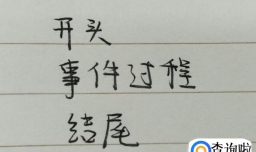 开头
事件过程
结尾
查询啦